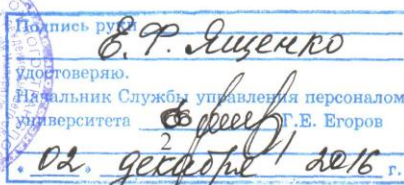 Подпись руки Е.Ф. Ященко
удостоверяю.
Начальник Службы управления персоналом
университета Г.Е. Егоров
2
"02" декабря 2016 г.